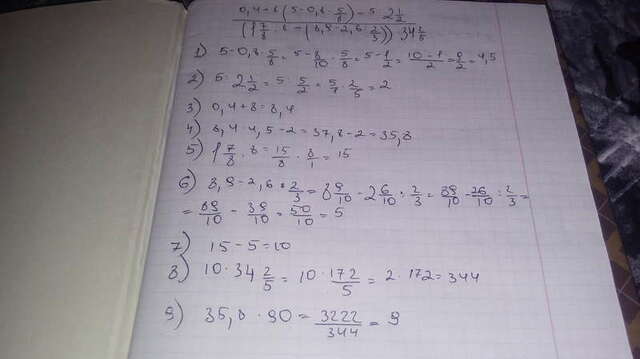 0,4+8(5-0,8·5/8)-5:2 1/2
(1 7/8·8-(8,9-2,6:2/3))·34 2/5
1) 5-0,8·5/8=5-8/10·5/8=5-1/2=10-1/2=9/2=4,5
2) 5:2 1/2=5:5/2=5/1·2/5=2
3) 0,4+8=8,4
4) 8,4·4,5-2=37,8-2=35,8
5) 1 7/8·8=15/8·8/1=15
6) 8,9-2,6:2/3=8 9/10-2 6/10:2/3=89/10-26/10:2/3=
=89/10-39/10=50/10=5
7) 15-5=10
8) 10·34 2/5=10·172/5=2·172=344
9) 35,8·90=3222/344=9